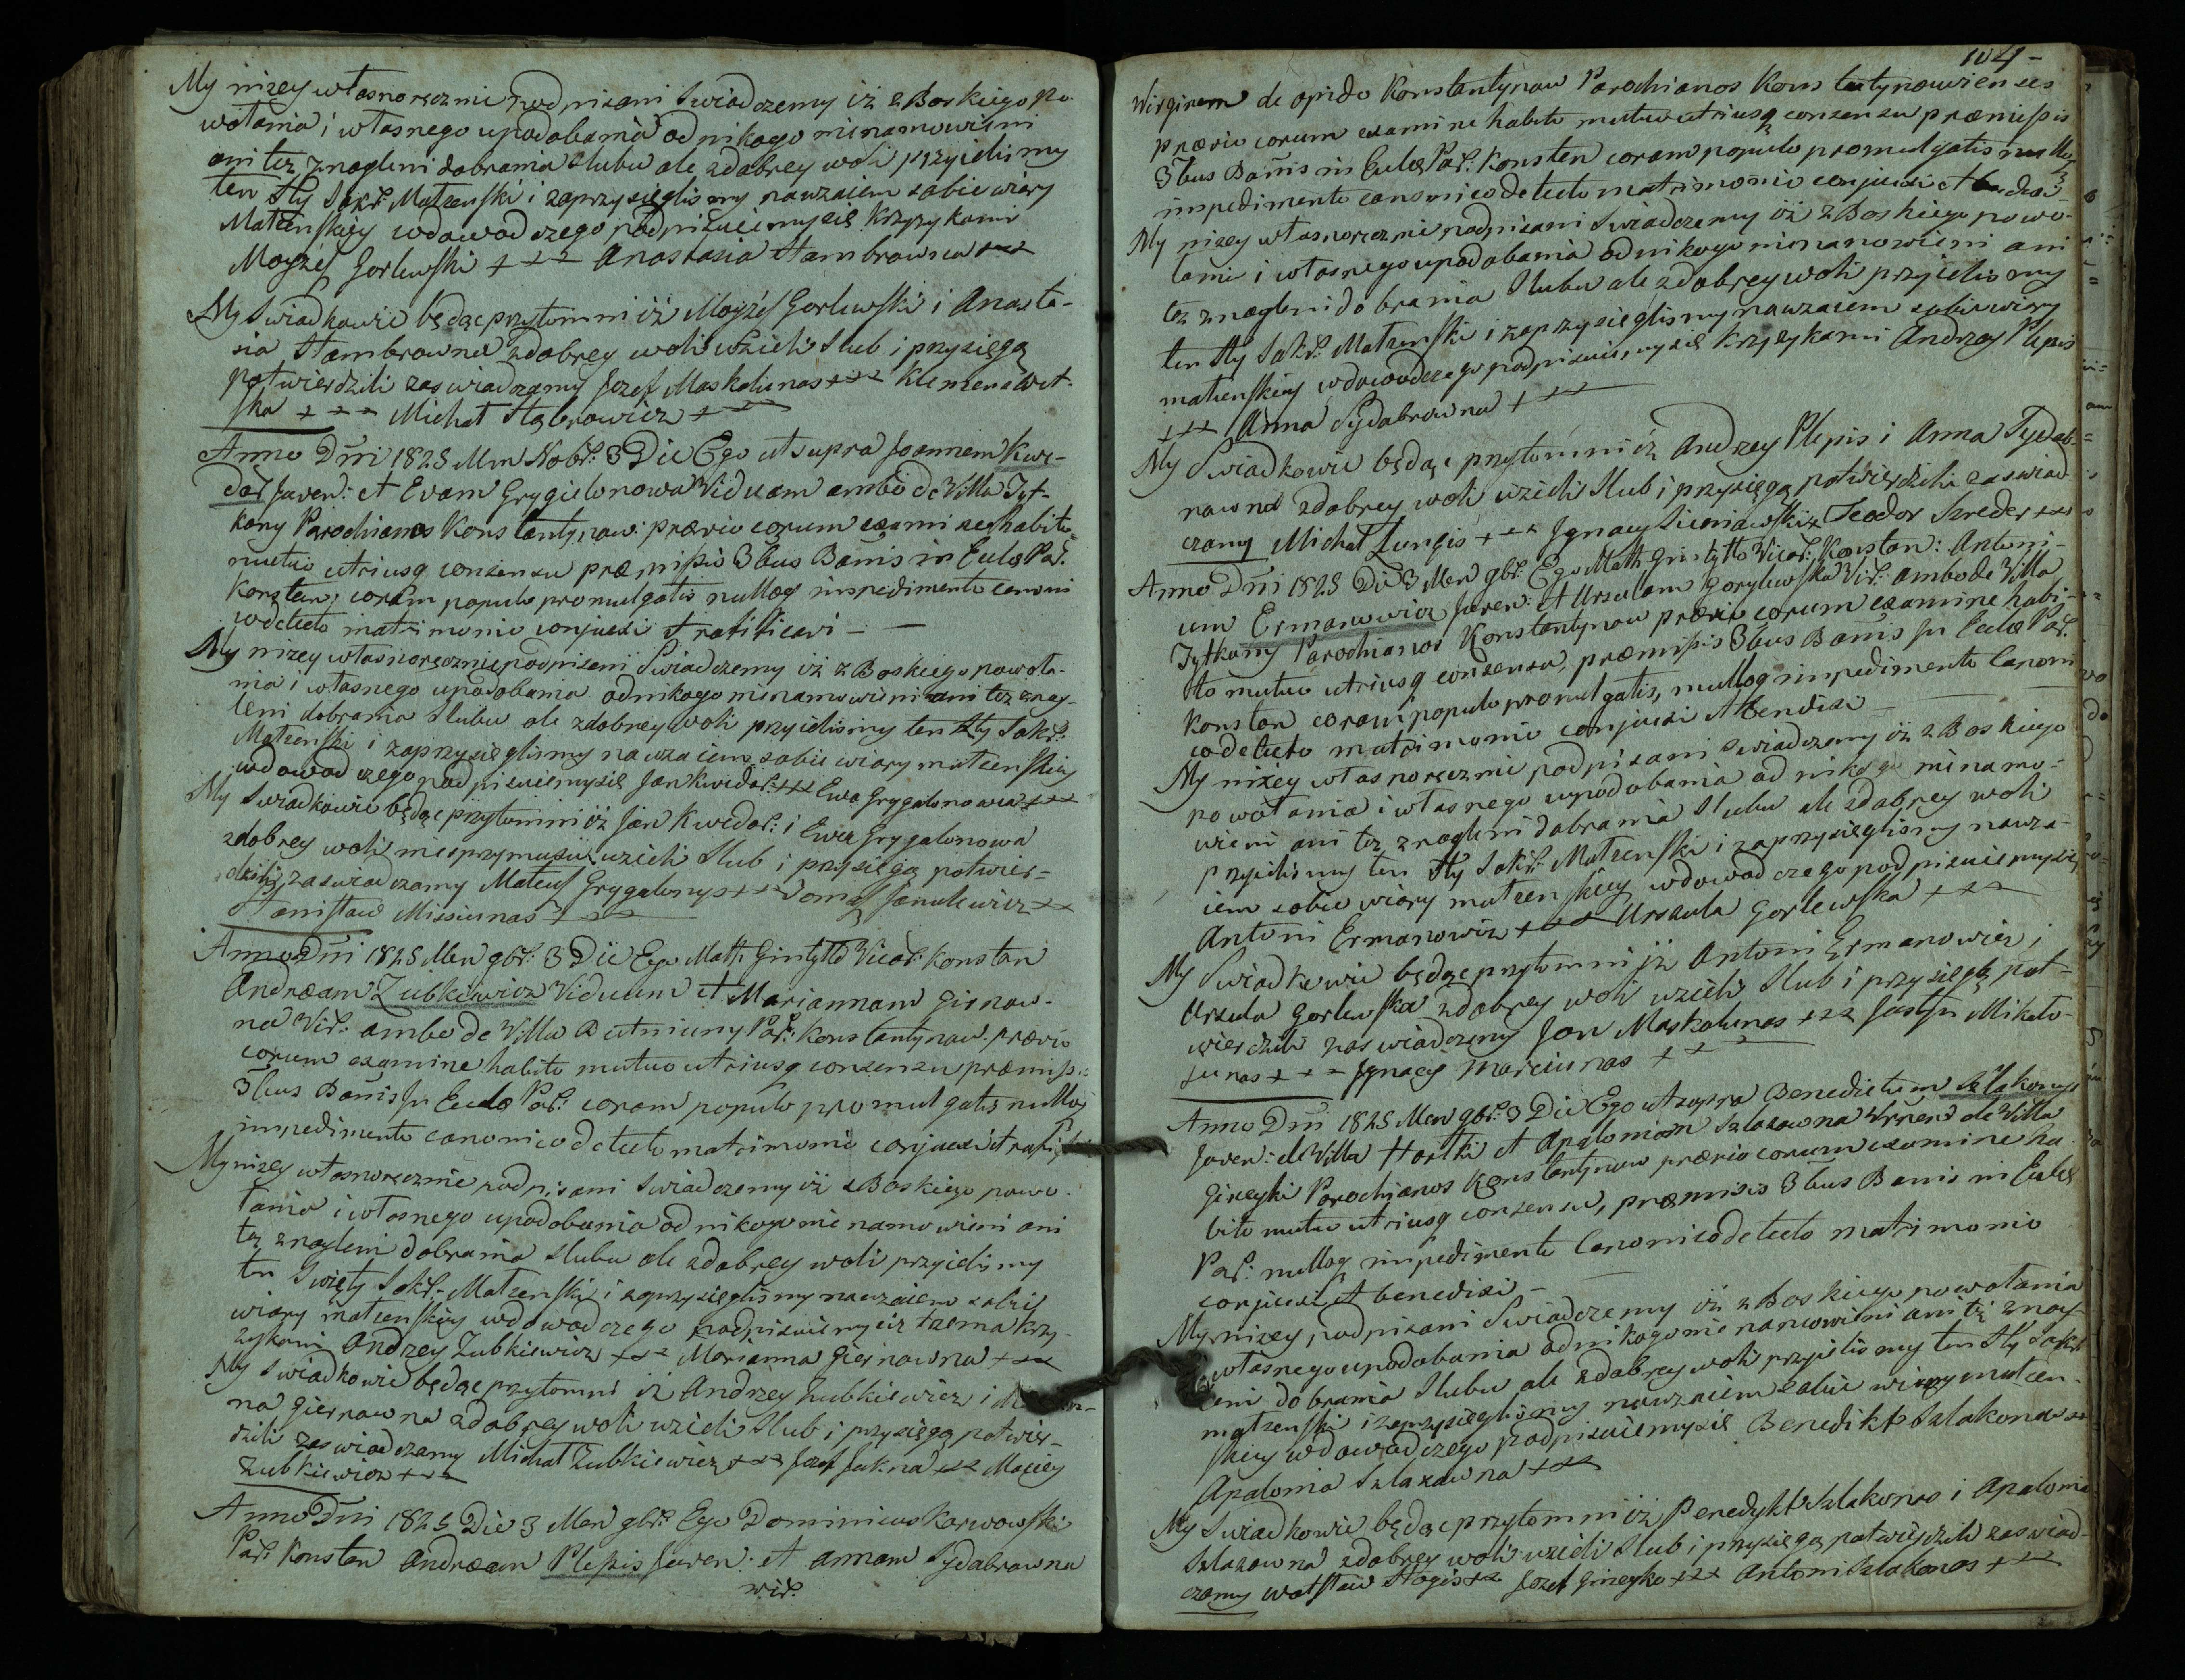 My niżey własnoręcznie podpisani Swiadczemy iż z Boskiego po-
wołania i własnego upodobania od nikogo nienamowieni
ani też znagleni dobrania slubu ale zdobrey woli przyielismy
ten Sty Sakr: Małzenski i zaprzysięglismy nawzaiem sobie wiary
Małzenskiey wdowod czego podpisuiemysię krzyzykami
Moyżesz Gorlewski +++ Anastasia Stambrowna +++
My Swiadkowie będąc przytomni iż Moyżesz Gorlewski i Anasta-
sia Stambrowna zdobrey woli wzieli Slub i przysięgą
potwierdzili zaswiadczamy Jozef Maskolunas +++ Klemens
+++ Michał Stąbrowicz +++
Anno Dni 1825 Men Nobr: 3 Die Ego ut supra Joannem Kwe-
dar Juven: et Evam Grygielonowa Viduam ambo de Villa Jyt-
kany Parochianos Konstantynow: prævio eorum examine habito
mutuo utriusq consensu præmissis 3bus Banis in Eccla Par:
Konstan, coram populo promulgatis nulloq impedimento canoni
co detecto matrimonio conjunxi et ratificavi – –
My nizey własnoręcznie podpisani Swiadczemy iż z Boskiego powoła-
nia i własnego upodobania od nikogo nienamowieni ani też znag-
leni dobrania Slubu ale zdobrey woli przyielismy ten Sty Sakr:
Małzenski i zaprzysięglismy nawzaiem sobie wiary małzenskiey
wdowod czego podpisuiemysię Jan Kwedar: +++ Ewa Grygalonowa +++
My Swiadkowie będąc przytomni iż Jan Kwedar: i Ewa Grygalonowa
zdobrey woli nieprzymusu wzieli Slub i przysięgą potwier=
dzili, zaswiadczamy Mateusz Grygalonys +++ Tomasz Janulewicz ++
Stanisław Misiunas +++
Anno Dni 1825 Men 9br: 3 Die Ego Math Gintyłło Vicar: Konstan
Andræam Zubkiewicz Viduum et Mariannam Girnow-
na Vir: ambo de Villa Par: Konstantynow. prævio
eorum examine habito mutuo utriusq consensu præmiss:
3bus Banis In Eccla Par: coram populo promulgatis nulloq
impedimento canonico detecto matrimonio conjunxi et
My niżey własnoręcznie podpisani Swiadczemy iż z Boskiego powo-
łania i własnego upodobania od nikogo nie namowieni ani
też znagleni dobrania slubu ale zdobrey woli przyielismy
ten Swięty Sakr: Małzenski i zaprzysięglismy nawzaiem sobie
wiary małzenskiey wdowod czego podpisuiemysię trzema krzy-
zykami Andrzey Zubkiewicz +++ Marianna Giernowna +++
My Swiadkowie będąc przytomni iż Andrzey Zubkiewicz i
na Giernowna zdobrey woli wzieli Slub i przysięgą potwier-
dzili zaswiadczamy Michał Zubkiewicz +++ Jozef Jukna +++ Maciey
Zubkiewicz +++
Anno Dni 1825 Die 3 Men 9br: Ego Dominicus Karwowski
Par: Konstan Andræam Plepis Juven: et Annam Sydabrowna
Vir:
104 –
Virginem de opido Konstantynow Parochianos Konstantynowienses
prævio eorum examine habito mutuo utriusq consensu præmissis
3bus Banis in Eccla Par: Konsten coram populo promulgatis nulloq
impedimento canonico detecto matrimonio conjunxi et
My niżey własnoręcznie podpisani Swiadczemy iż z Boskiego powo-
łania i własnego upodobania od nikogo nienamowieni ani
też znagleni do brania Slubu ale zdobrey woli przyielismy
ten Sty Sakr: Małzenski i zaprzysięglismy nawzaiem sobie wiary
małzenskiey wdowod czego podpisuiemysię krzyzykami Andrzey Plepis
+++ Anna Sydabrowna +++
My Swiadkowie będąc przytomni iż Andrzey Plepis i Anna Sydab-
rowna zdobrey woli wzieli Slub i przysięgą potwierdzili zaswiad-
czamy Michał Lungis +++ Ignacy Sieniawski + Teodor Szreder +++
Anno Dni 1825 Die 3 Men 9br: Ego Math Gintyłło Vicar: Konstan: Antoni-
um Ermanowicz Juven: et Ursulam Gorylewska Vir: ambo de Villa
Jytkany Parochianos Konstantynow prævio eorum examine habi-
to mutuo utriusq consensu, præmissis 3bus Banis in Eccla Par:
Konstan coram populo promulgatis, nulloq impedimento Canoni
co detecto matrimonio conjunxi et benedixi –
My niżey własnoręcznie podpisani Swiadczemy iż z Boskiego
powołania i własnego upodobania od nikogo nienamo-
wieni ani też znagleni dobrania Slubu ale zdobrey woli
przyielismy ten Sty Sakr: Małzenski i zaprzysięglismy nawza-
iem sobie wiary małzenskiey wdowod czego podpisuiemysię
Antoni Ermanowicz +++ Urszula Gorlewska +++
My Swiadkowie będąc przytomni iż Antoni Ermanowicz i
Urszula Gorlewska zdobrey woli wzieli Slub i przysięgą pot-
wierdzili zaswiadczamy Jan Maskolunas +++ Justyn Mikoło-
junas +++ Ignacy Marciunas +++
Anno Dni 1825 Men 9br: 3 Die Ego ut supra Benedictum Szlakonas
Juven: de Villa Hortki et Apaloniam Szlazowna de Villa
Gineyki Parochianos Konstantynow prævio eorum examine ha-
bito mutuo utriusq consensu, præmissis 3bus Banis in Eccla
Par: nulloq impedimento Canonico detecto matrimonio
conjunxi et benedixi –
My niżey podpisani Swiadczemy iż z Boskiego powołania
i własnego upodobania od nikogo nie namowieni ani też znag-
leni dobrania Slubu ale zdobrey woli przyielismy ten Sty Sakr:
małzenski i zaprzysięglismy nawzaiem sobie wiary małzen-
skiey wdowod czego podpisuiemysię Benedikt Szlakonas ++
Apalonia Szlazowna +++
My Swiadkowie będąc przytomni iż Benedykt Szlakonas i Apalonia
Szlazowna zdobrey woli wzieli Slub i przysięgą potwierdzili zaswiad-
czamy Wołsław Stogis ++ Jozef Gineyko +++ Antoni Szlakonas +++